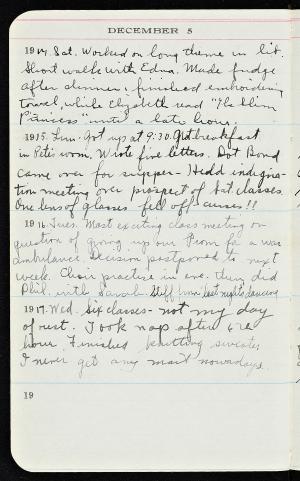 DECEMBER 5
1914. Sat. Worked on long theme in lit.
Short walk with Edna. Made fudge
after dinner, finished embroidering
towel, while Elizabeth read "The Slim
Princess" until a late hour.
1915. Sun. Got up at 9:30. Got breakfast
in Pete's room. Wrote five letters. Dot Bond
came over for supper - Held indigna-
tion meeting over prospect of Sat. classes.
One lens of glasses fell off causes!!
1916 Tues. Most exciting class meeting on
question of giving up our Prom for a war
ambulance. Decision postponed to next
week. Choir practice in eve. then did
Phil. with Sarah. Stiff from last night's dancing
1917. Wed. Six classes - not my day
of rest. Took nap after 4th
hour. Finished knitting sweater
I never get any mail nowadays.
19